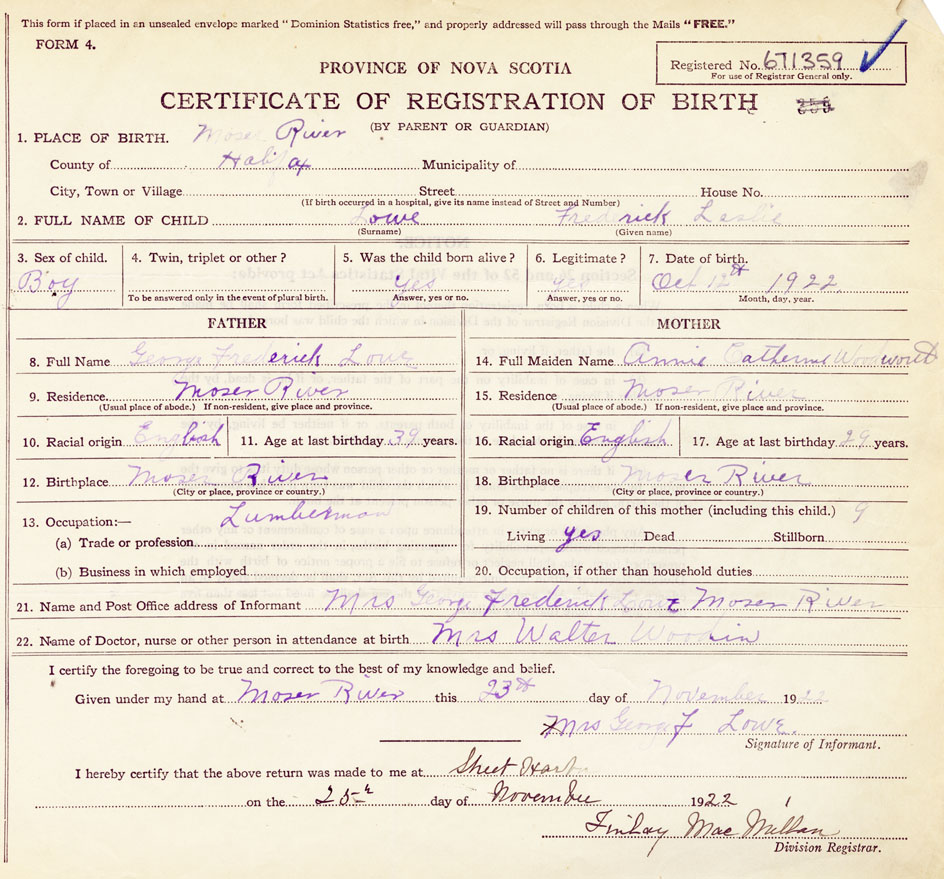 This form if placed in an unsealed envelope marked "Dominion Statistics free," and properly addressed will pass through the Mails "FREE."
FORM 4.
Registered No. 671359
For use of Registrar General only.
PROVINCE OF NOVA SCOTIA
CERTIFICATE OF REGISTRATION OF BIRTH
(BY PARENT OR GUARDIAN)
1. PLACE OF BIRTH. Moser River
County of Halifax Municipality of
City, Town or Village Street House No.
(If birth occurred in a hospital, give its name instead of Street and Number)
2. FULL NAME OF CHILD Lowe Frederick Leslie
(Surname) (Given name)
3. Sex of child. 4. Twin, triplet or other? 5. Was the child born alive? 6. Legitimate? 7. Date of birth.
Boy Yes yes Oct 12th 1922
To be answered only in the event of plural birth. Answer, yes or no. Answer, yes or no. Month, day, year.
FATHER MOTHER
8. Full Name George Frederick Lowe 14. Full Maiden Name Annie Catherine Woodworth
9. Residence Moser River 15. Residence Moser River
(Usual place of abode.) If non-resident, give place and province. (Usual place of abode.) If non-resident, give place and province.
10. Racial origin English 11. Age at last birthday 39 years. 16. Racial origin English 17. Age at last birthday 29 years.
12. Birthplace Moser River 18. Birthplace Moser River
(City or place, province or country.) (City or place, province or country.)
13. Occupation:— Lumberman 19. Number of children of this mother (including this child.) 9
(a) Trade or profession Living yes Dead Stillborn
(b) Business in which employed 20. Occupation, if other than household duties
21. Name and Post Office address of Informant Mrs George Frederick Lowe Moser River
22. Name of Doctor, nurse or other person in attendance at birth Mrs Walter
I certify the foregoing to be true and correct to the best of my knowledge and belief.
Given under my hand at Moser River this 23th day of November 1922
Mrs George F Lowe.
Signature of Informant.
I hereby certify that the above return was made to me at Sheet Harb
on the 25th day of November 1922
Finlay MacMillan
Division Registrar.